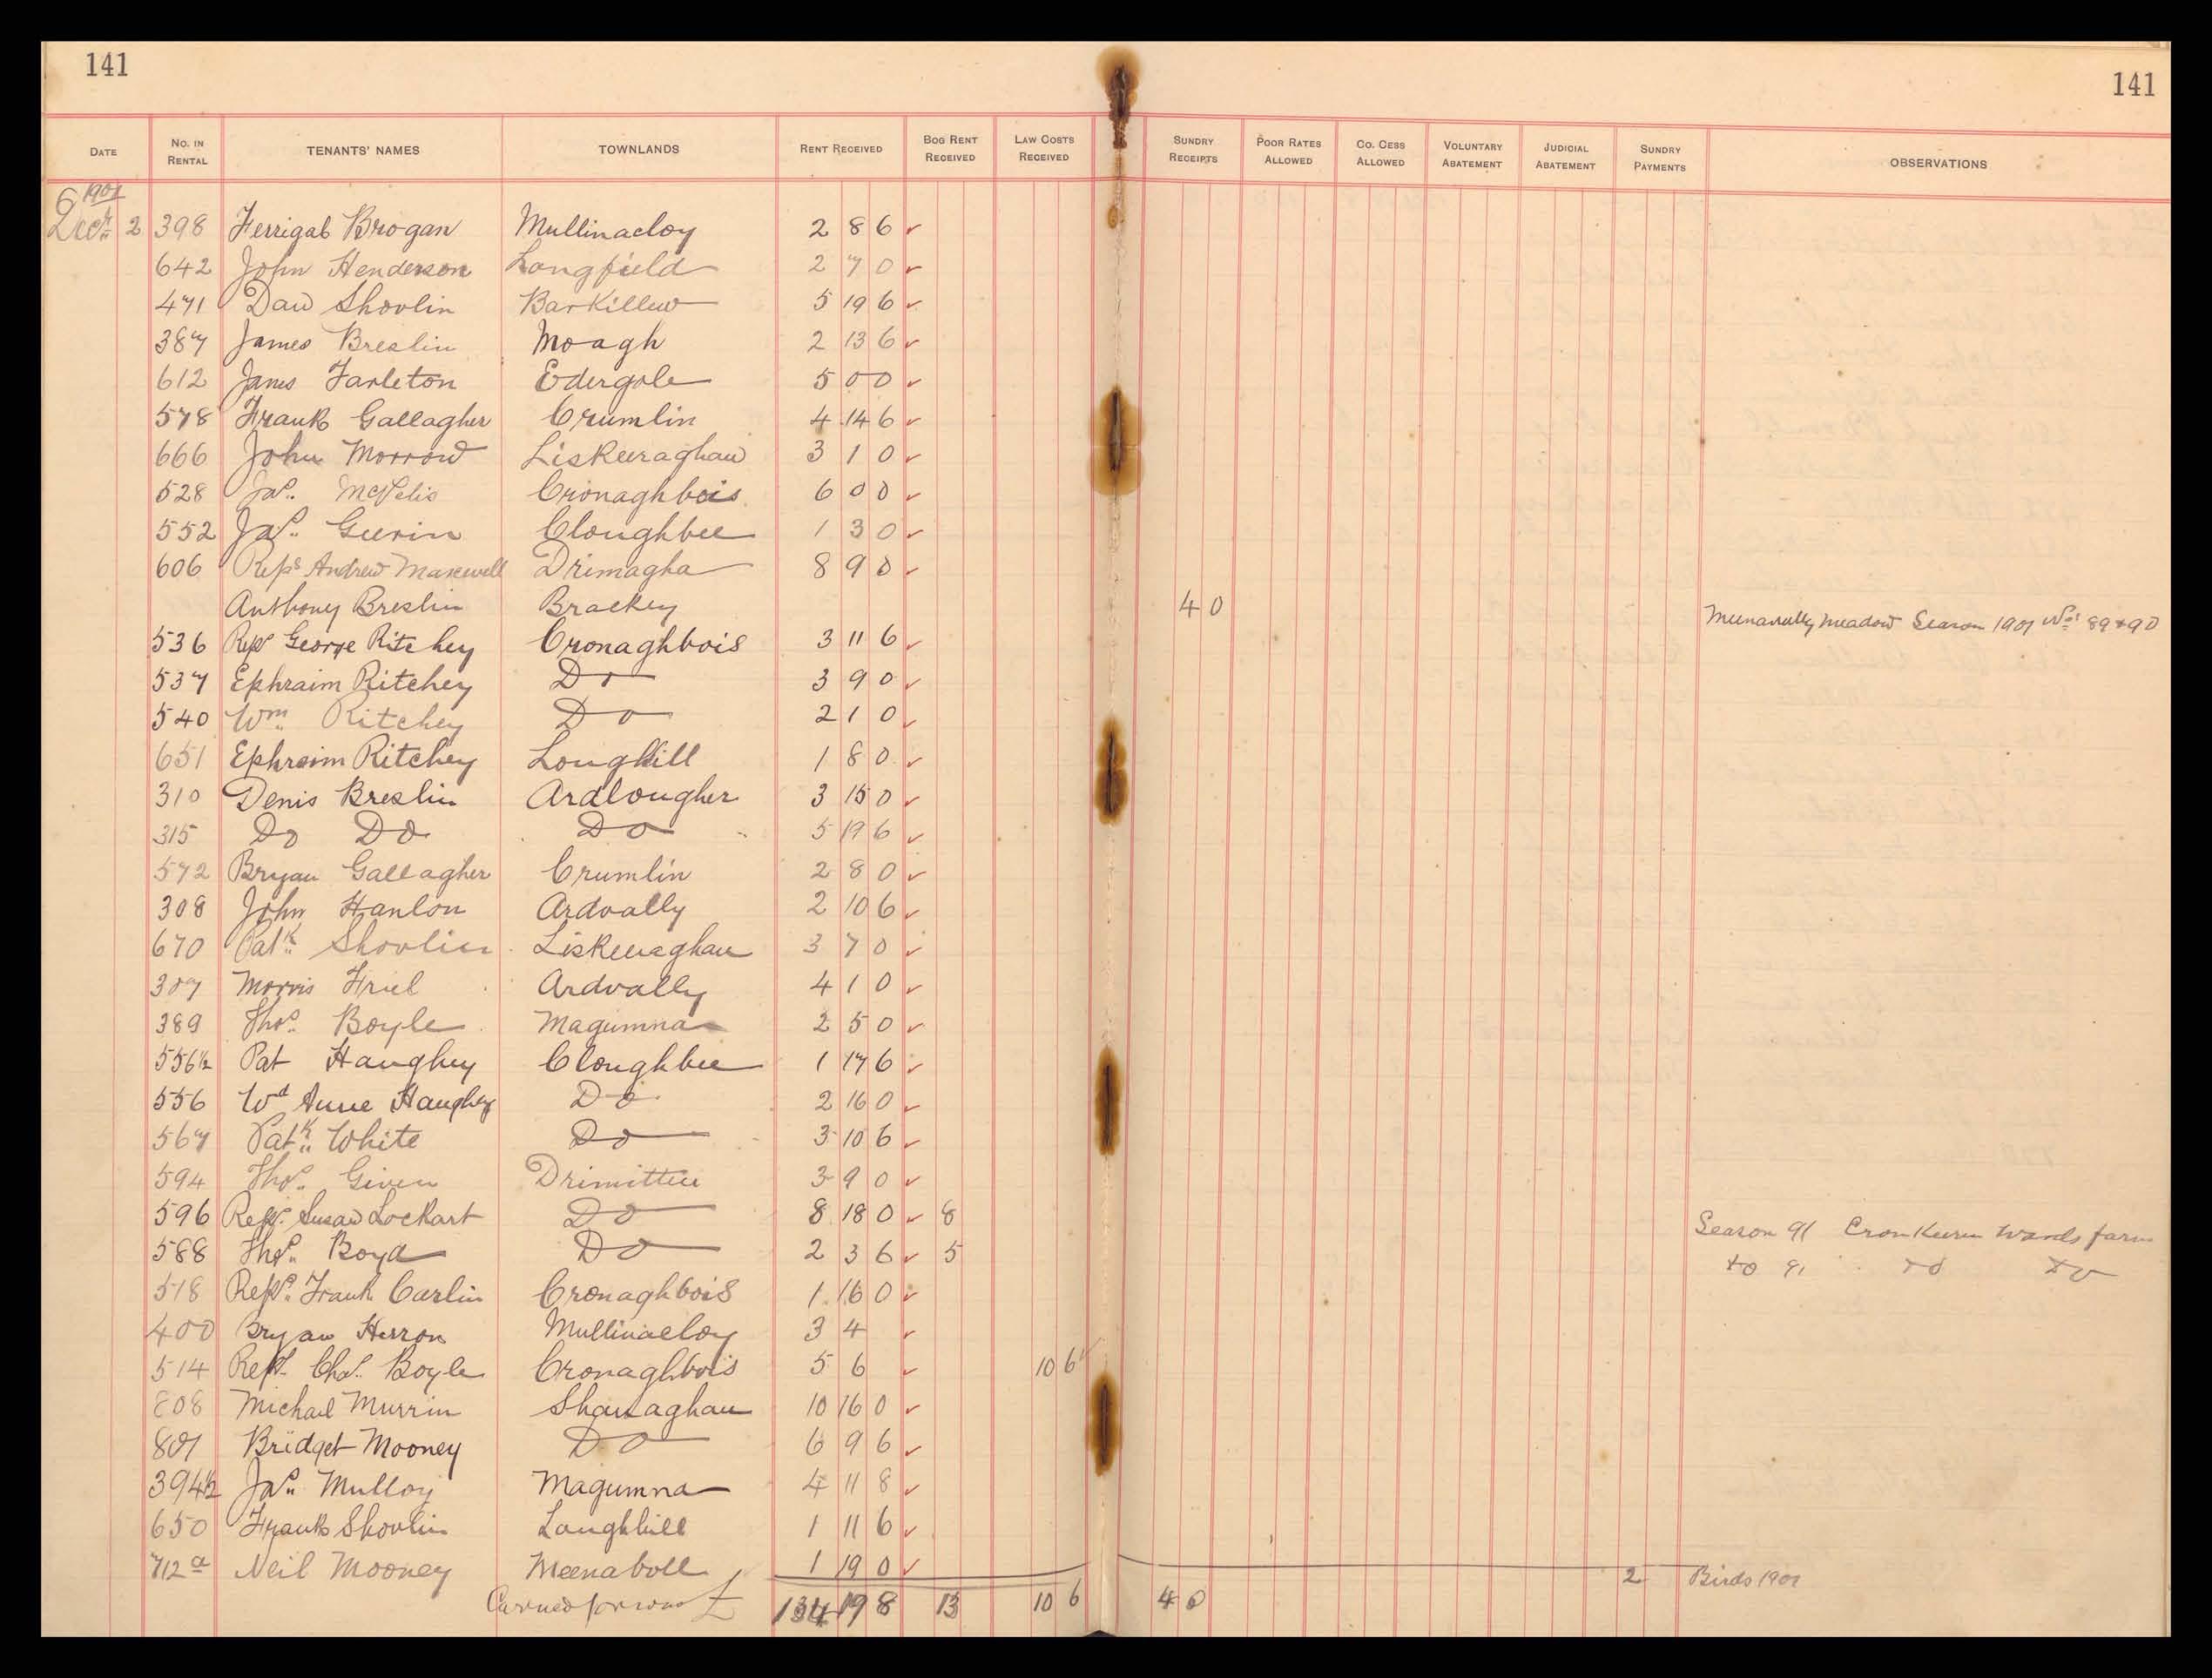 141 141
DATE NO. IN RENTAL TENANTS' NAMES TOWNLANDS RENT RECEIVED BOG RENT RECEIVED LAW COSTS RECEIVED SUNDRY RECEIPTS POOR RATES ALLOWED CO. CESS ALLOWED VOLUNTARY ABATEMENT JUDICIAL ABATEMENT SUNDRY PAYMENTS OBSERVATIONS
1901
Decr 2 398 Ferrigal Brogan Mullinacloy 2 8 6
642 John Henderson Longfield 2 7 0
471 Dan Shovlin Barkillew 5 19 6
387 James Breslin Moagh 2 13 6
612 James Tarleton Edergole 5 0 0
578 Frank Gallagher Crumlin 4 14 6
666 John Morrow Liskeeraghan 3 1 0
528 Jas. McNelis Cronaghbois 6 0 0
552 Jas. Geerin Cloughbee 1 3 0
606 Reps Andrew Maxwell Drimagha 8 9 0
Anthony Breslin Brackey 4 0 Meenavally Meadow Season 1901 Nos 89 & 90
536 Reps George Ritchey Cronaghbois 3 11 6
537 Ephraim Ritchey Do 3 9 0
540 Wm. Ritchey Do 2 1 0
651 Ephraim Ritchey Loughill 1 8 0
310 Denis Breslin Ardlougher 3 15 0
315 Do Do Do 5 19 6
572 Bryan Gallagher Crumlin 2 8 0
308 John Hanlon Ardvally 2 10 6
670 Patk. Shovlin Liskeeraghan 3 7 0
307 Morris Friel Ardvally 4 1 0
389 Thos. Boyle Magumna 2 5 0
556½ Pat Haughey Cloughbee 1 17 6
556 Wd Annie Haughey Do 2 16 0
567 Patk. White Do 3 10 6
594 Thos. Given Drimittin 3 9 0
596 Reps. Susan Lockart Do 8 18 0 8 Season 91 Cronkeern Wards farm
588 Thos. Boyd Do 2 3 6 5 do 91 do do
518 Reps. Frank Carlin Cronaghbois 1 16 0
400 Bryan Herron Mullinacloy 3 4
514 Reps. Chas. Boyle Cronaghbois 5 6 10 6
808 Michael Murrin Shanaghan 10 16 0
801 Bridget Mooney Do 6 9 6
394½ Jas. Mulloy Magumna 4 11 8
650 Frank Shovlin Loughhill 1 11 6
712a Neil Mooney Meenaboll 1 19 0 2 Birds 1901
Carried forward £ 134 19 8 13 10 6 4 0